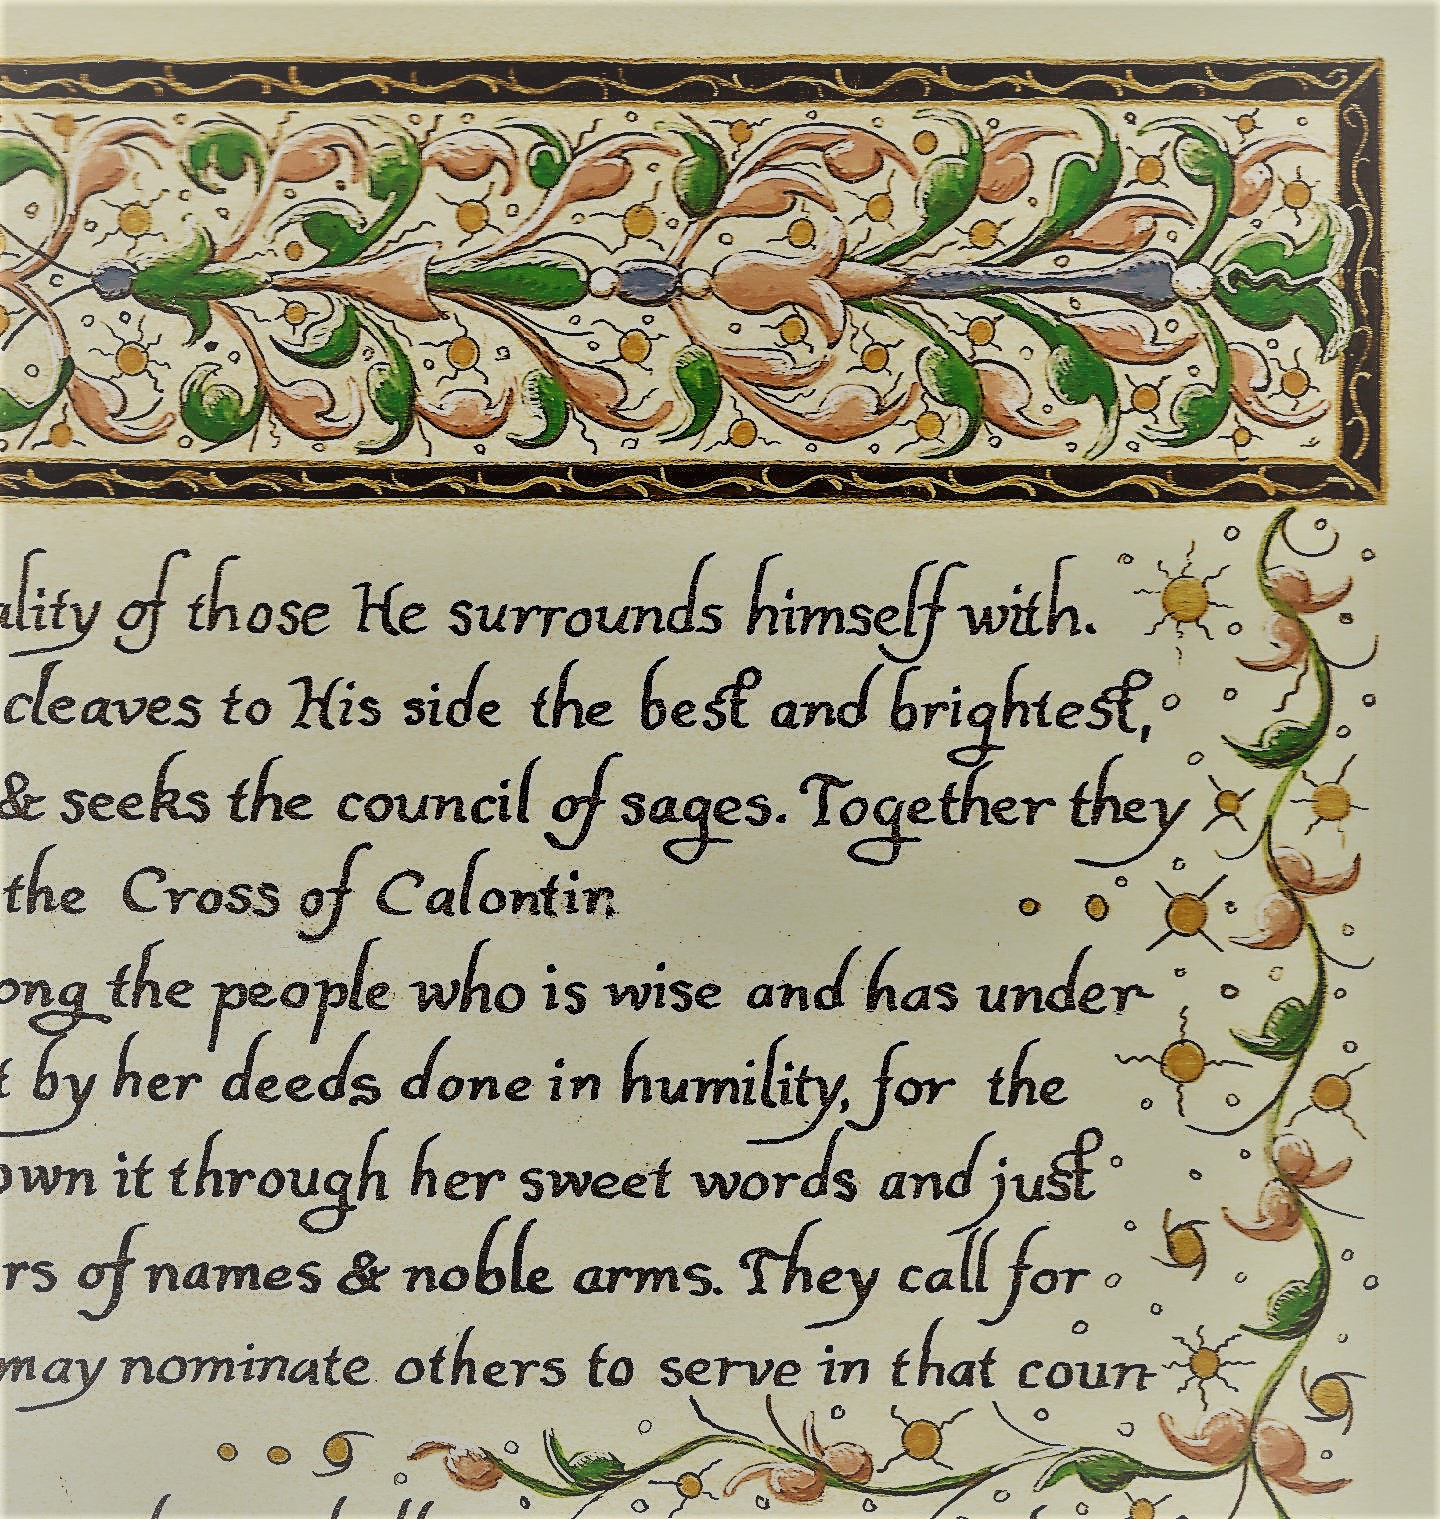 ality of those He surrounds himself with.
cleaves to His side the best and brightest,
& seeks the council of sages. Together they
the Cross of Calontir.
ong the people who is wise and has under
t by her deeds done in humility, for the
own it through her sweet words and just
rs of names & noble arms. They call for
may nominate others to serve in that coun